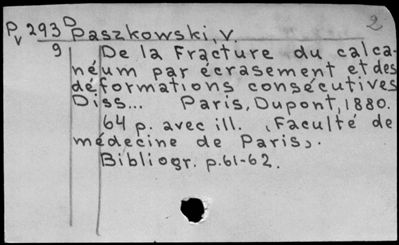 Pv 293D Paszkowski, V. 2
9 De la Fracture du calca-
néum par écrasement et des
déformations consécutives
Diss... Paris, Dupont, 1880.
64 p. avec ill. (Faculté de
médecine de Paris).
Bibliogr. p.61-62.